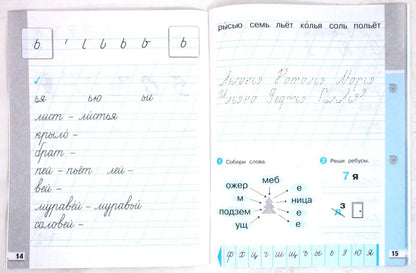 ь ı ι ь ь ь ь
ья ью ьи
лист – листья
крыло –
брат –
пей – пьёт лей –
вей –
муравей – муравьи
соловей –
14
рысью семь льёт колья соль польёт
1 Собери слова.
2 Реши ребусы.
меб
ожер е
м ница
подзем е
ущ е
7 я
з
ф х ц ч ш щ ъ ы ь э ю я
15